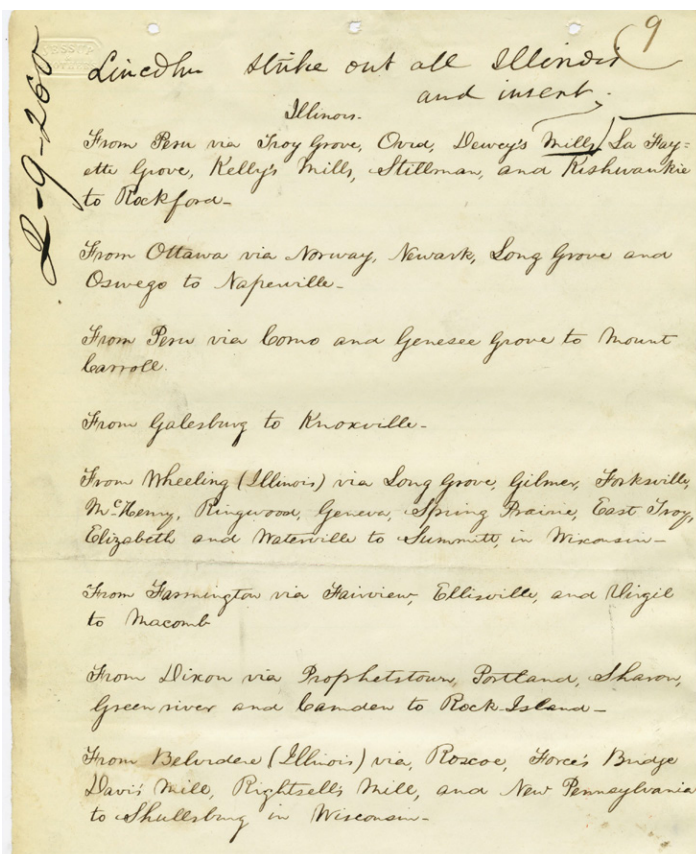 9
Lincoln strike out all Illinois
and insert.
2-9-260
Illinois.
From Peru via Troy Grove, Ovid, Dewey's Mills, La Fay-
ette Grove, Kelly's Mills, Stillman, and Kishwaukie
to Rockford-
From Ottawa via Norway, Newark, Long Grove and
Oswego to Naperville-
From Peru via Como and Genesee Grove to Mount
Carroll.
From Galesburg to Knoxville-
From Wheeling (Illinois) via Long Grove, Gilmer, Forksville,
McHenry, Ringwood, Geneva, Spring Prairie, East Troy,
Elizabeth and Waterville to Summitt, in Wisconsin-
From Farmington via Fairview, Ellisville, and Virgil
to Macomb
From Dixon via Prophetstown, Portland, Sharon,
Green river and Camden to Rock Island-
From Belvidere (Illinois) via, Roscoe, Force's Bridge
Davis' Mill, Rightsell's Mill, and New Pennsylvania
to Shullsburg in Wisconsin-